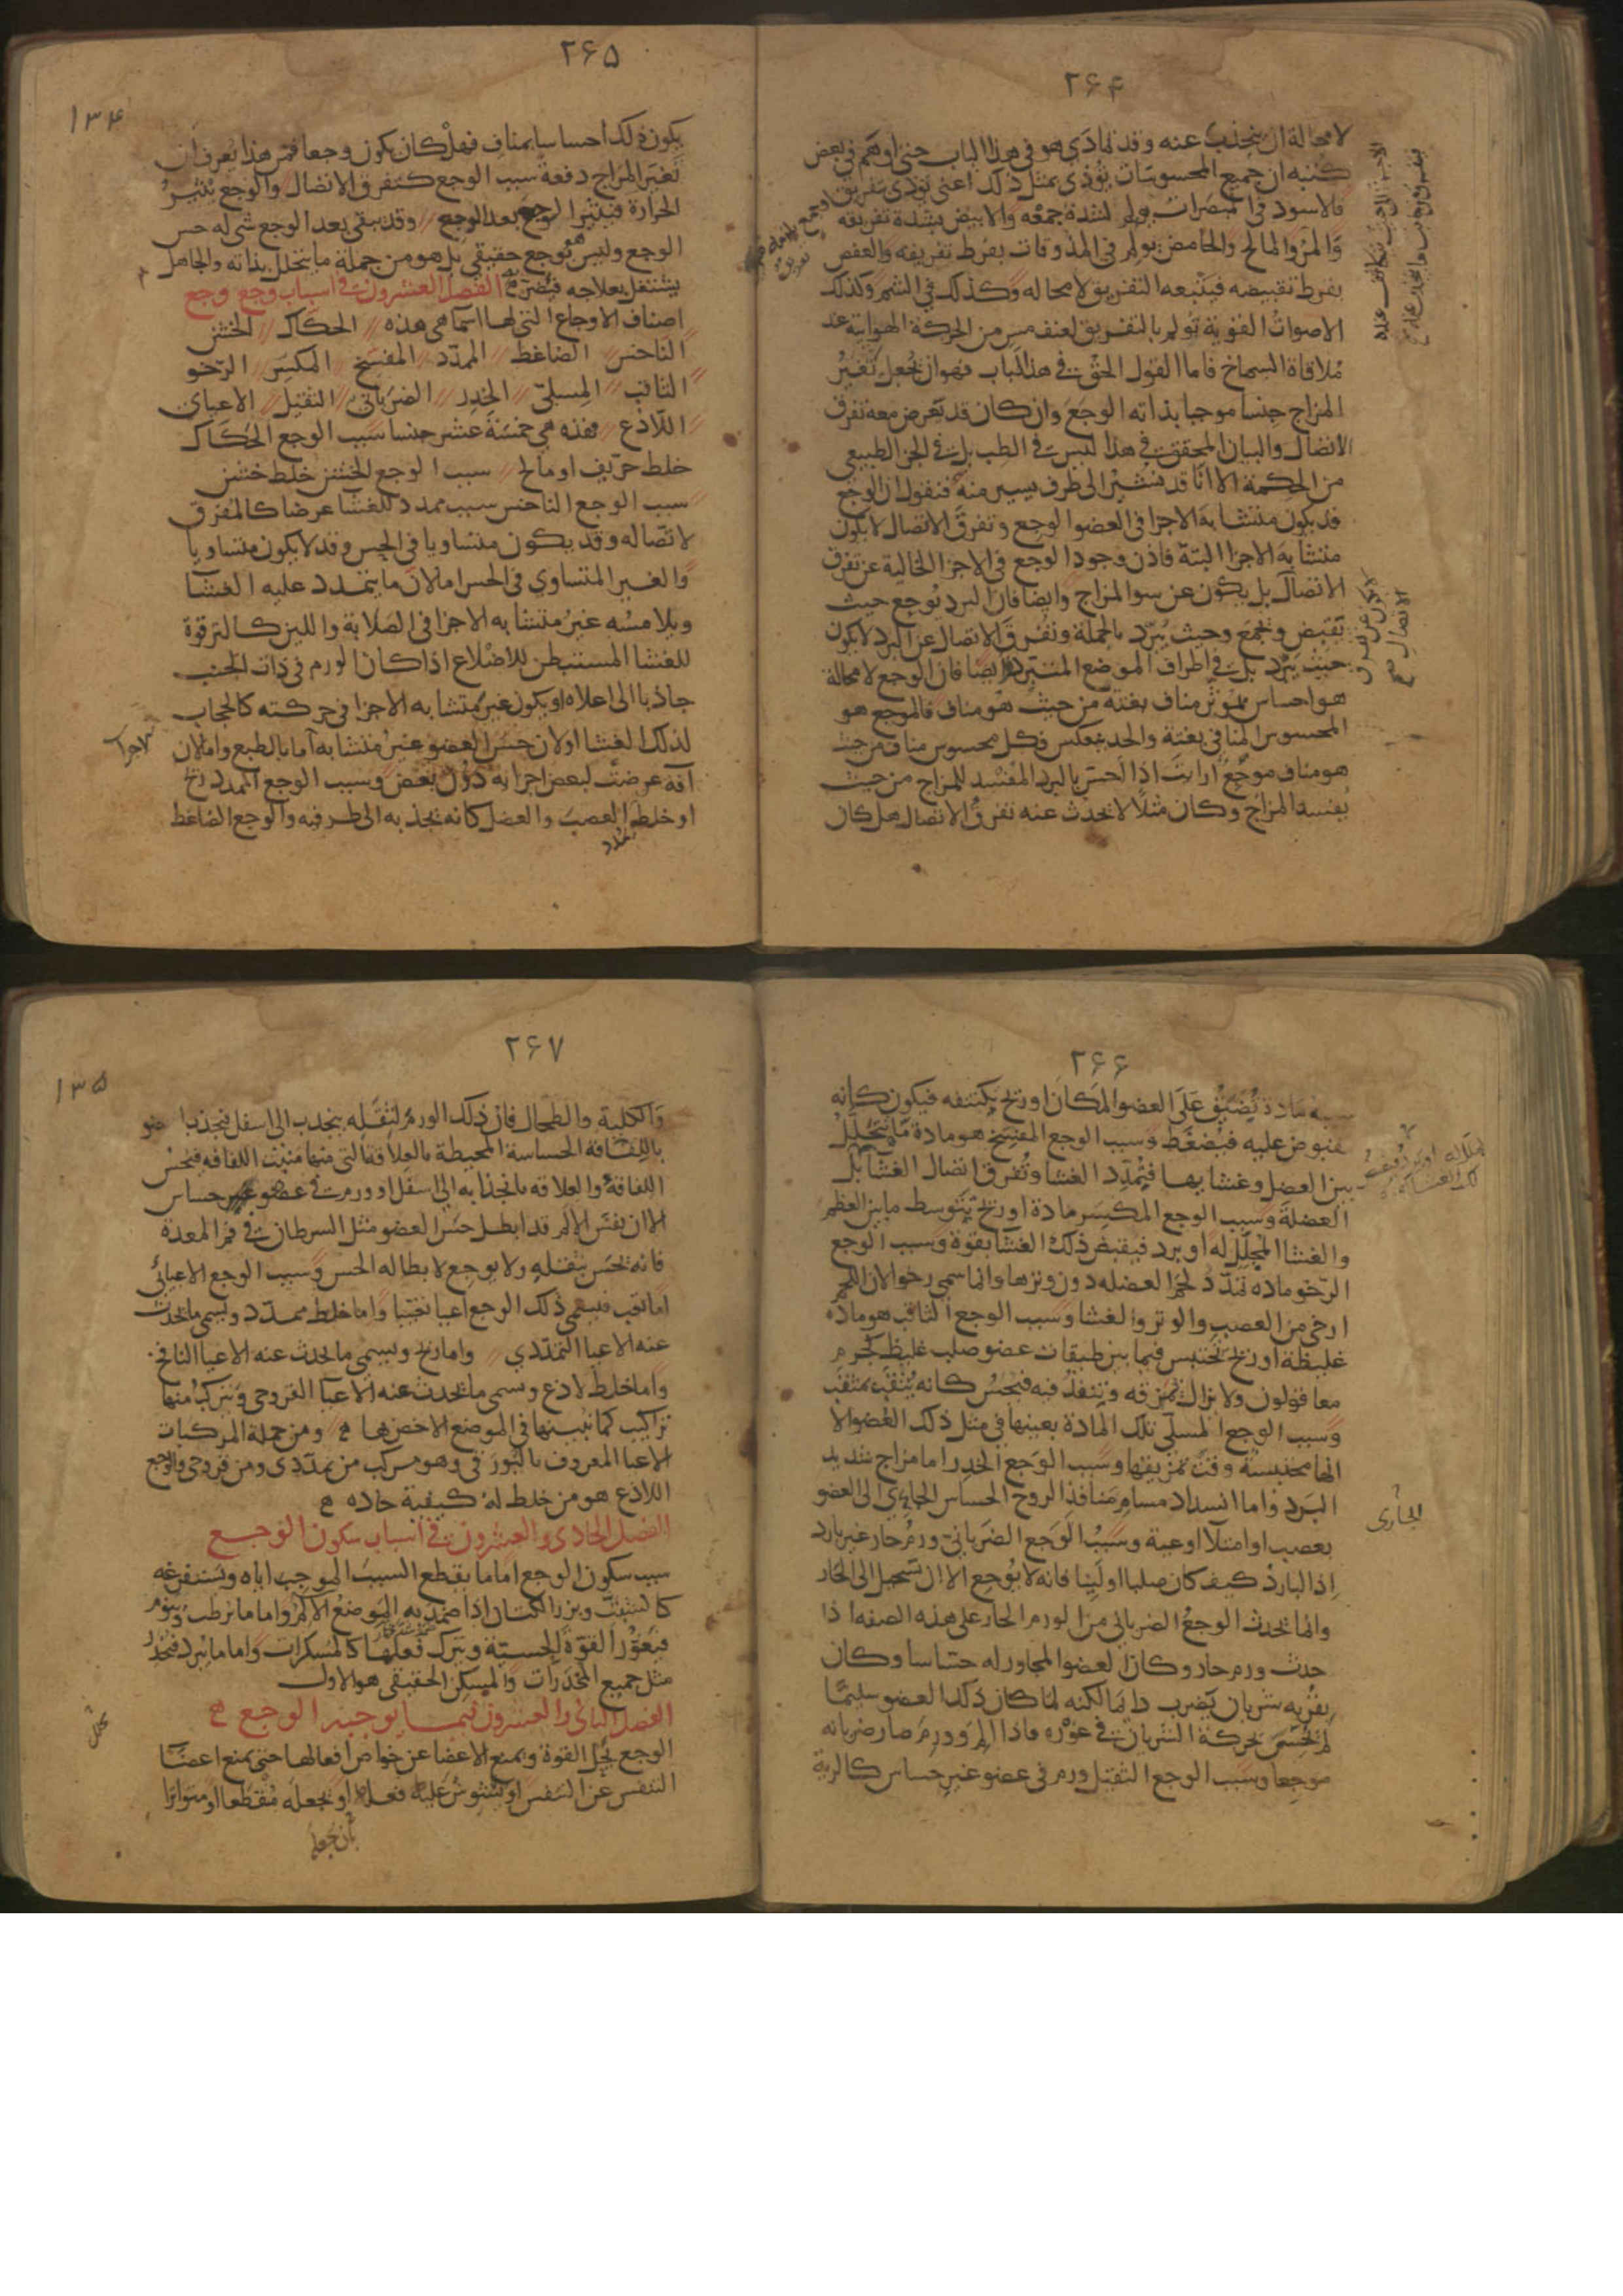 ۲۶۴
لا محالة ان ينجذب عنه وقد تمادى هو في هذا الباب حتى اوهم في بعض
كتبه ان جميع المحسوسات تؤذى بمثل ذلك اعنى تؤذى بتفريق
فالاسود في المبصرات يولم لشدة جمعه والابيض بشدة تفريقه
والمر والمالح والحامض يولم في المذوقات بفرط تفريقه والعفص
بفرط تقبيضه فيتبعه التفريق لا محاله وكذلك في الشم وكذلك
الاصوات القوية تولم بالتفريق لعنف مس من الحركة الهوائية عند
ملاقاة السماخ فاما القول الحق في هذا الباب فهو ان يجعل تغير
المزاج جنسا موجبا بذاته الوجع وان كان قد تعرض معه تفرق
الاتصال والبيان المحقق في هذا ليس في الطب بل في الجز الطبيعى
من الحكمة الا انا قد نشير الى طرف يسير منه فنقول ان الوجع
قد يكون متشابه الاجزا في العضو الوجع وتفرق الاتصال لا يكون
متشابه الاجزا البتة فاذن وجود الوجع في الاجزا الخالية عن تفرق
الاتصال بل يكون عن سو المزاج وايضا فان البرد يوجع حيث
تقبض وتجمع وحيث يبرد بالجملة وتفرق الاتصال عن البرد لا يكون
حيث يبرد بل في اطراف الموضع المتبرد وايضا فان الوجع لا محالة
هو احساس بموثر مناف بغتة من حيث هو مناف فالموجع هو
المحسوس المنافي بغتة والحد ينعكس فكل محسوس مناف من حيث
هو مناف موجع ارايت اذا احس بالبرد المفسد للمزاج من حيث
يفسد المزاج وكان مثلا لا يحدث عنه تفرق الاتصال هل كان
۲۶۵
۱۳۴
يكون ذلك احساسا بمناف فهل كان يكون وجعا فمن هذا يعرف ان
تغير المزاج دفعة سبب الوجع كتفرق الاتصال والوجع يثير
الحرارة فيثير الوجع بعد الوجع وقد يبقى بعد الوجع شى له حس
الوجع وليس هو بوجع حقيقي بل هو من جملة ما يتحلل بذاته والجاهل
يشتغل بعلاجه فيضر به الفصل العشرون في اسباب وجع وجع
اصناف الاوجاع التي لها اسما هي هذه الحكاك الخشن
الناخس الضاغط الممدد المفسخ المكسر الرخو
الثاقب المسلى الخدر الضربانى الثقيل الاعياى
اللاذع فهذه هي خمسة عشر جنسا سبب الوجع الحكاك
خلط حريف او مالح سبب الوجع الخشن خلط خشن
سبب الوجع الناخس سبب ممدد للغشا عرضا كالمفرق
لاتصاله وقد يكون متساويا في الحس وقد لا يكون متساويا
والغير المتساوي في الحس اما لان ما يتمدد عليه الغشا
ويلامسه غير متشابه الاجزا في الصلابة واللين كالترقوة
للغشا المستبطن للاضلاع اذا كان الورم في ذات الجنب
جاذبا الى اعلاه او يكون غير متشابه الاجزا في حركته كالحجاب
لذلك الغشا او لان حس العضو غير متشابه اما بالطبع واما لان
آفة عرضت لبعض اجزائه دون بعض وسبب الوجع الممدد ريح
او خلط العصب والعضل كانه يجذبه الى طرفيه والوجع الضاغط
يمدد
۲۶۶
سببه مادة تضيق على العضو المكان او ريح يكتنفه فيكون كانه
مقبوض عليه فيضغط وسبب الوجع المفسخ هو مادة ما يتحلل
بين العضل وغشايها فيمدد الغشا وتفرق اتصال الغشا بل
العضلة وسبب الوجع المكسر مادة او ريح يتوسط ما بين العظم
والغشا المجلل له او برد فيقبض ذلك الغشا بقوة وسبب الوجع
الرخو مادة تمدد لحم العضله دون وترها وانما سمى رخوا لان اللحم
ارخى من العصب والوتر والغشا وسبب الوجع الثاقب هو مادة
غليظة او ريح تحتبس فيما بين طبقات عضو صلب غليظ كجرم
معا قولون ولا يزال تمزقه وينفذ فيه فيحس كانه يثقب بمثقب
وسبب الوجع المسلى تلك المادة بعينها في مثل ذلك العضو الا
انها محتبسة وقت تمزيقها وسبب الوجع الخدر اما مزاج شديد
البرد واما انسداد مسام منافذ الروح الحساس الجاري الى العضو
بعصب او امتلا اوعية وسبب الوجع الضربانى ورم حار غير بارد
اذ البارد كيف كان صلبا او لينا فانه لا يوجع الا ان تستحيل الى الحار
وانما يحدث الوجع الضربانى من الورم الحار على هذه الصفه اذا
حدث ورم حار وكان العضو المجاور له حساسا وكان
بقربه شريان يضرب دايما لكنه لما كان ذلك العضو سليما
لم يحس بحركة الشريان في غوره فاذا الم وورم صار ضربانه
موجعا وسبب الوجع الثقيل ورم في عضو غير حساس كالرية
الجاري
۲۶۷
۱۳۵
والكلية والطحال فان ذلك الورم لثقله ينجذب الى اسفل فيجذب
باللفافة الحساسة المحيطة بالعلاقة التي منها منبت اللفافه فيحس
اللفافة والعلاقه بانجذابه الى اسفل او ورم في عضو حساس
الا ان نفس الالم قد ابطل حس العضو مثل السرطان في فم المعدة
فانه يحس بثقله ولا يوجع لابطاله الحس وسبب الوجع الاعيائى
اما تعب فيسمى ذلك الوجع اعيا تعبيا واما خلط ممدد ويسمى ما يحدث
عنه الاعيا التمددي واما ريح ويسمى ما يحدث عنه الاعيا النافخ
واما خلط لاذع ويسمى ما يحدث عنه الاعيا القروحى وتتركب منها
تراكيب كما نبينها في الموضع الاخص بها ومن جملة المركبات
الاعيا المعروف بالبورقي وهو مركب من تمددى ومن قروحى والوجع
اللاذع هو من خلط له كيفية حاده
الفصل الحادى والعشرون في اسباب سكون الوجع
سبب سكون الوجع اما ما يقطع السبب الموجب اياه ويستفرغه
كالشبث وبزر الكتان اذا ضمد به الموضع الالم واما ما يرطب وينوم
فتغور القوة الحسية ويترك فعلها كالمسكرات واما ما يبرد فيخدر
مثل جميع المخدرات والمسكن الحقيقى هو الاول
الفصل الثانى والعشرون فيما يوجبه الوجع
الوجع يحل القوة ويمنع الاعضا عن خواص افعالها حتى يمنع اعضا
التنفس عن التنفس او يشوش عليه فعله او يجعله متقطعا او متواترا